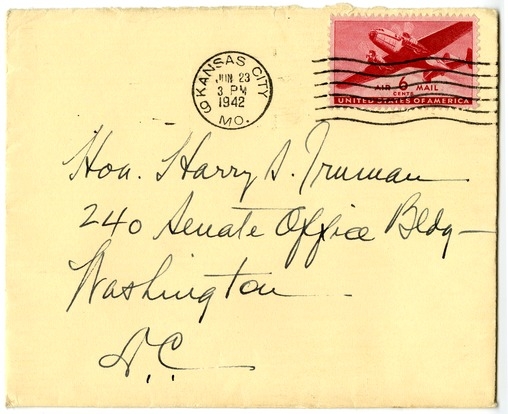 KANSAS CITY
19
JUN 23
3 PM
1942
MO.
AIR 6 MAIL
CENTS
UNITED STATES OF AMERICA
Hon. Harry S. Truman
240 Senate Office Bldg—
Washington
D.C.